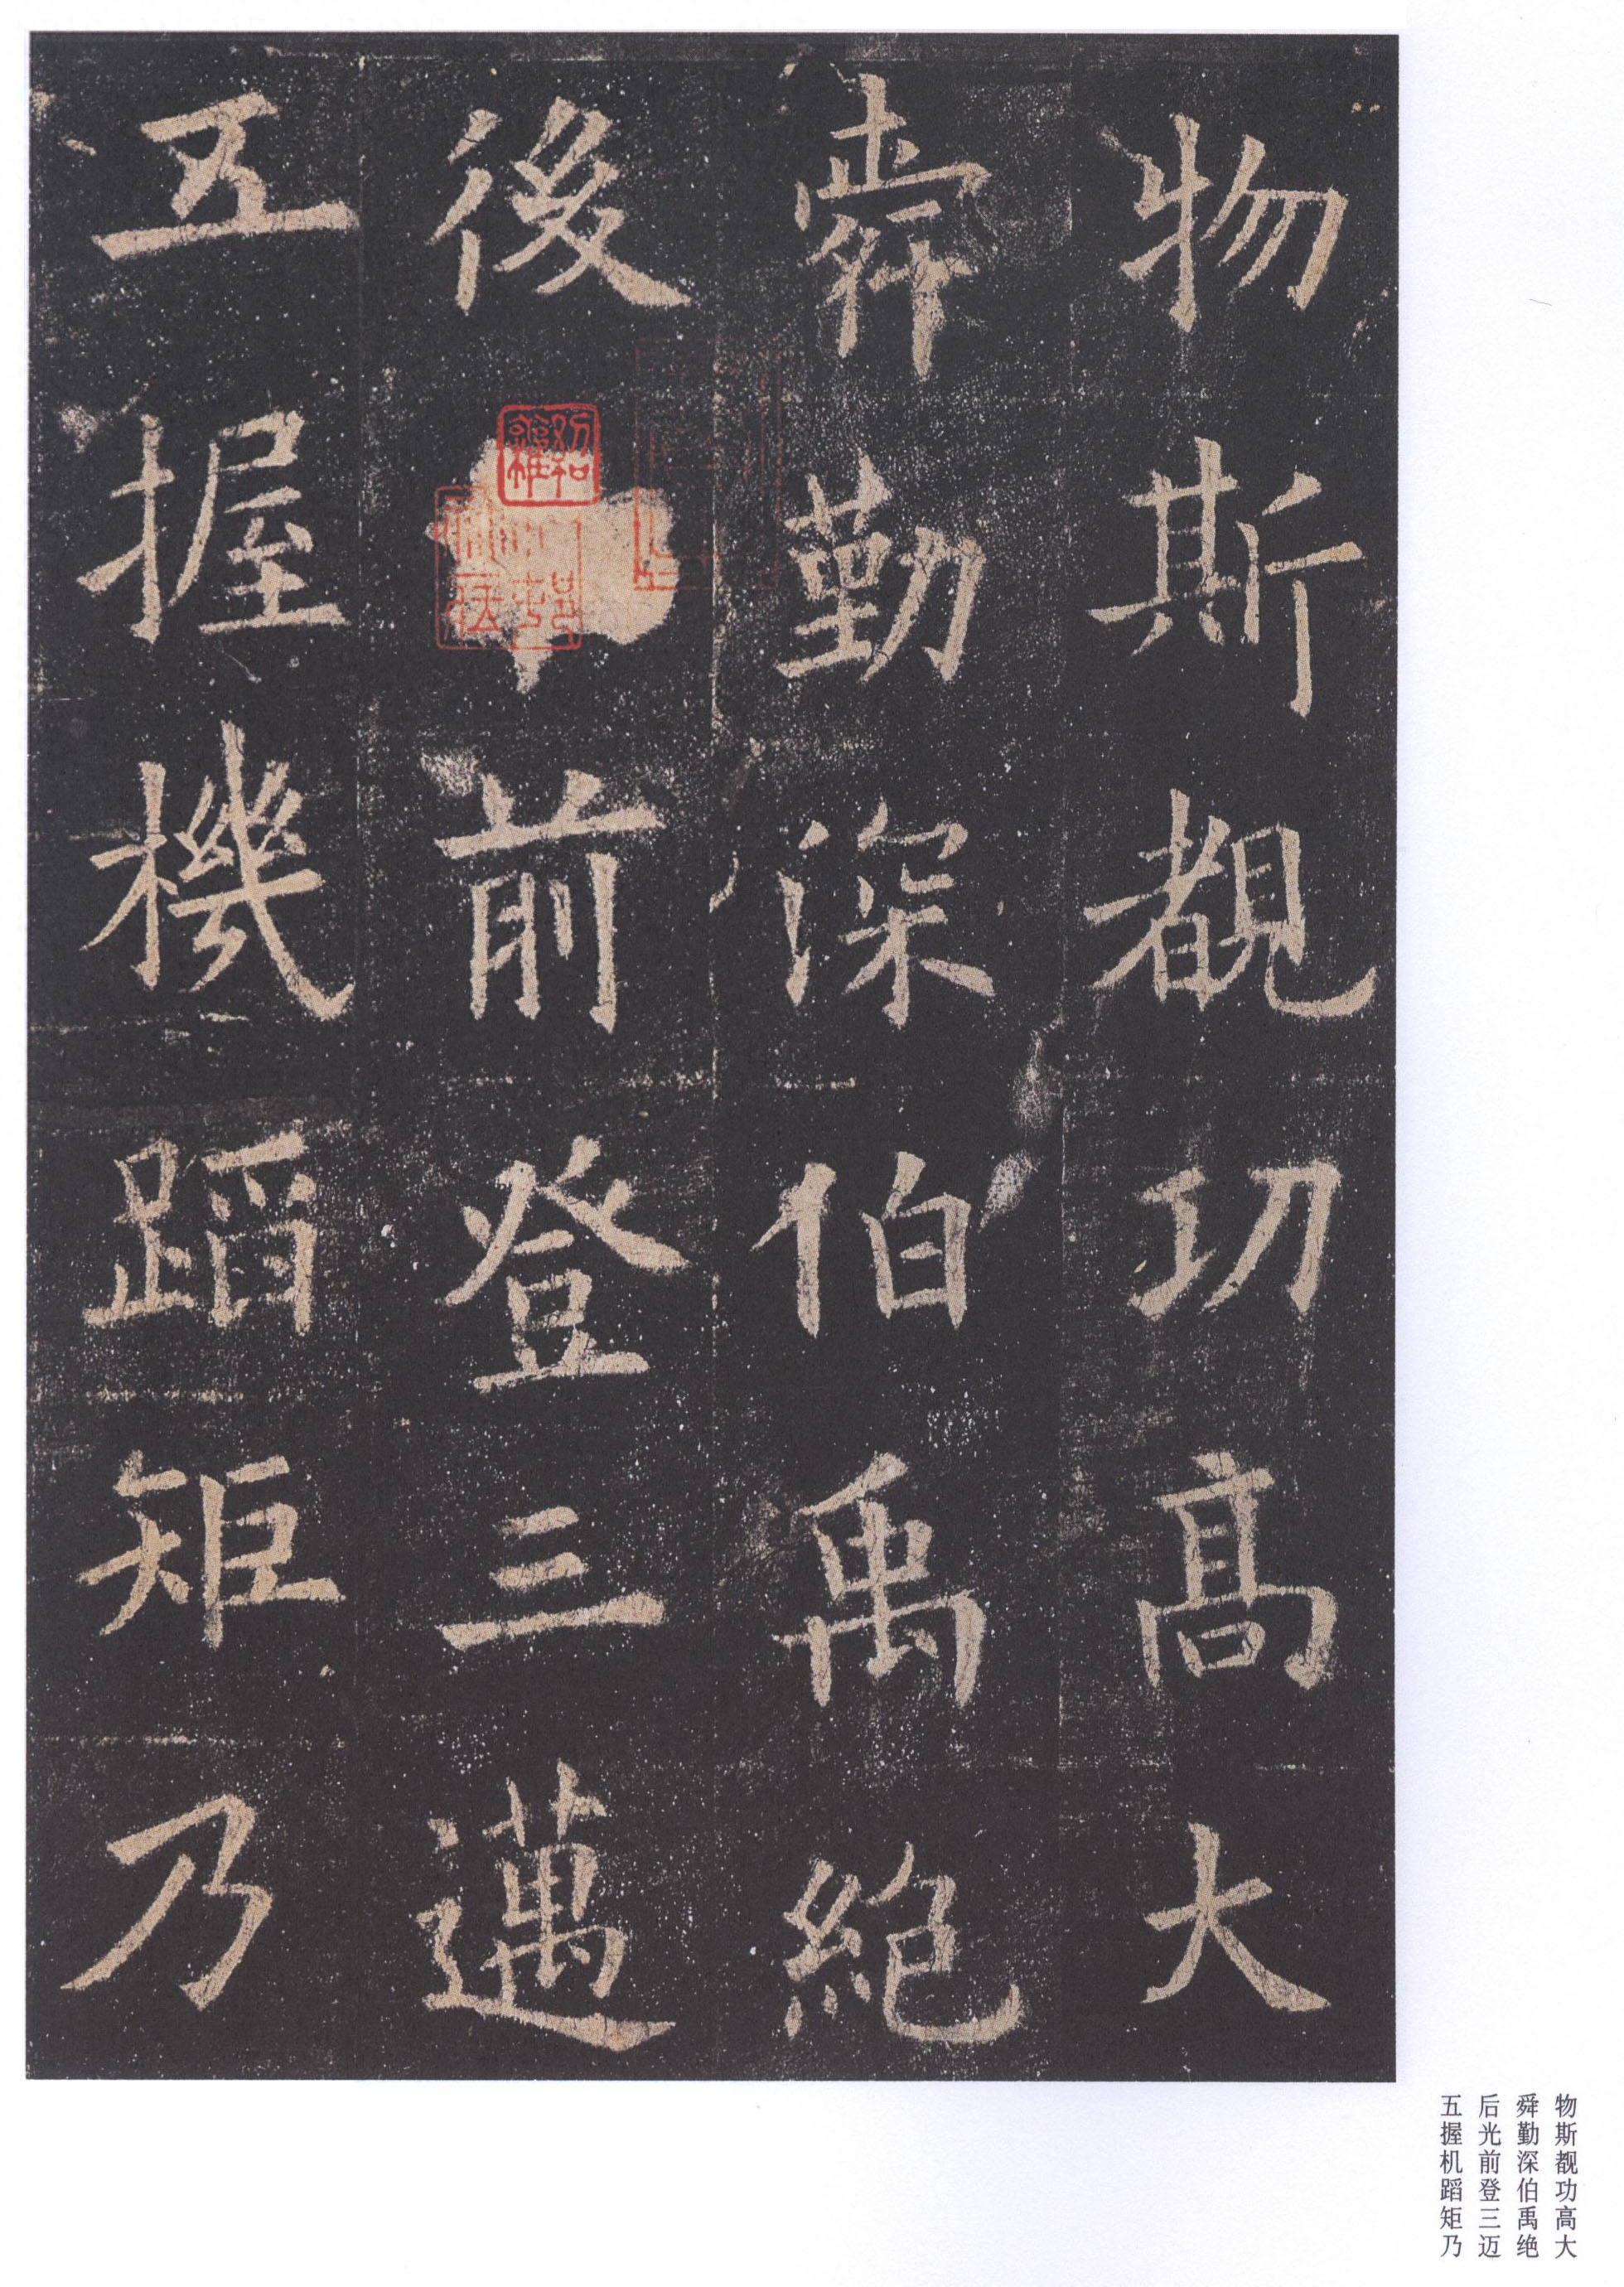 物斯覩功高大
舜勤深伯禹絶
後前登三邁
五握機蹈矩乃
物斯睹功高大
舜勤深伯禹绝
后光前登三迈
五握机蹈矩乃